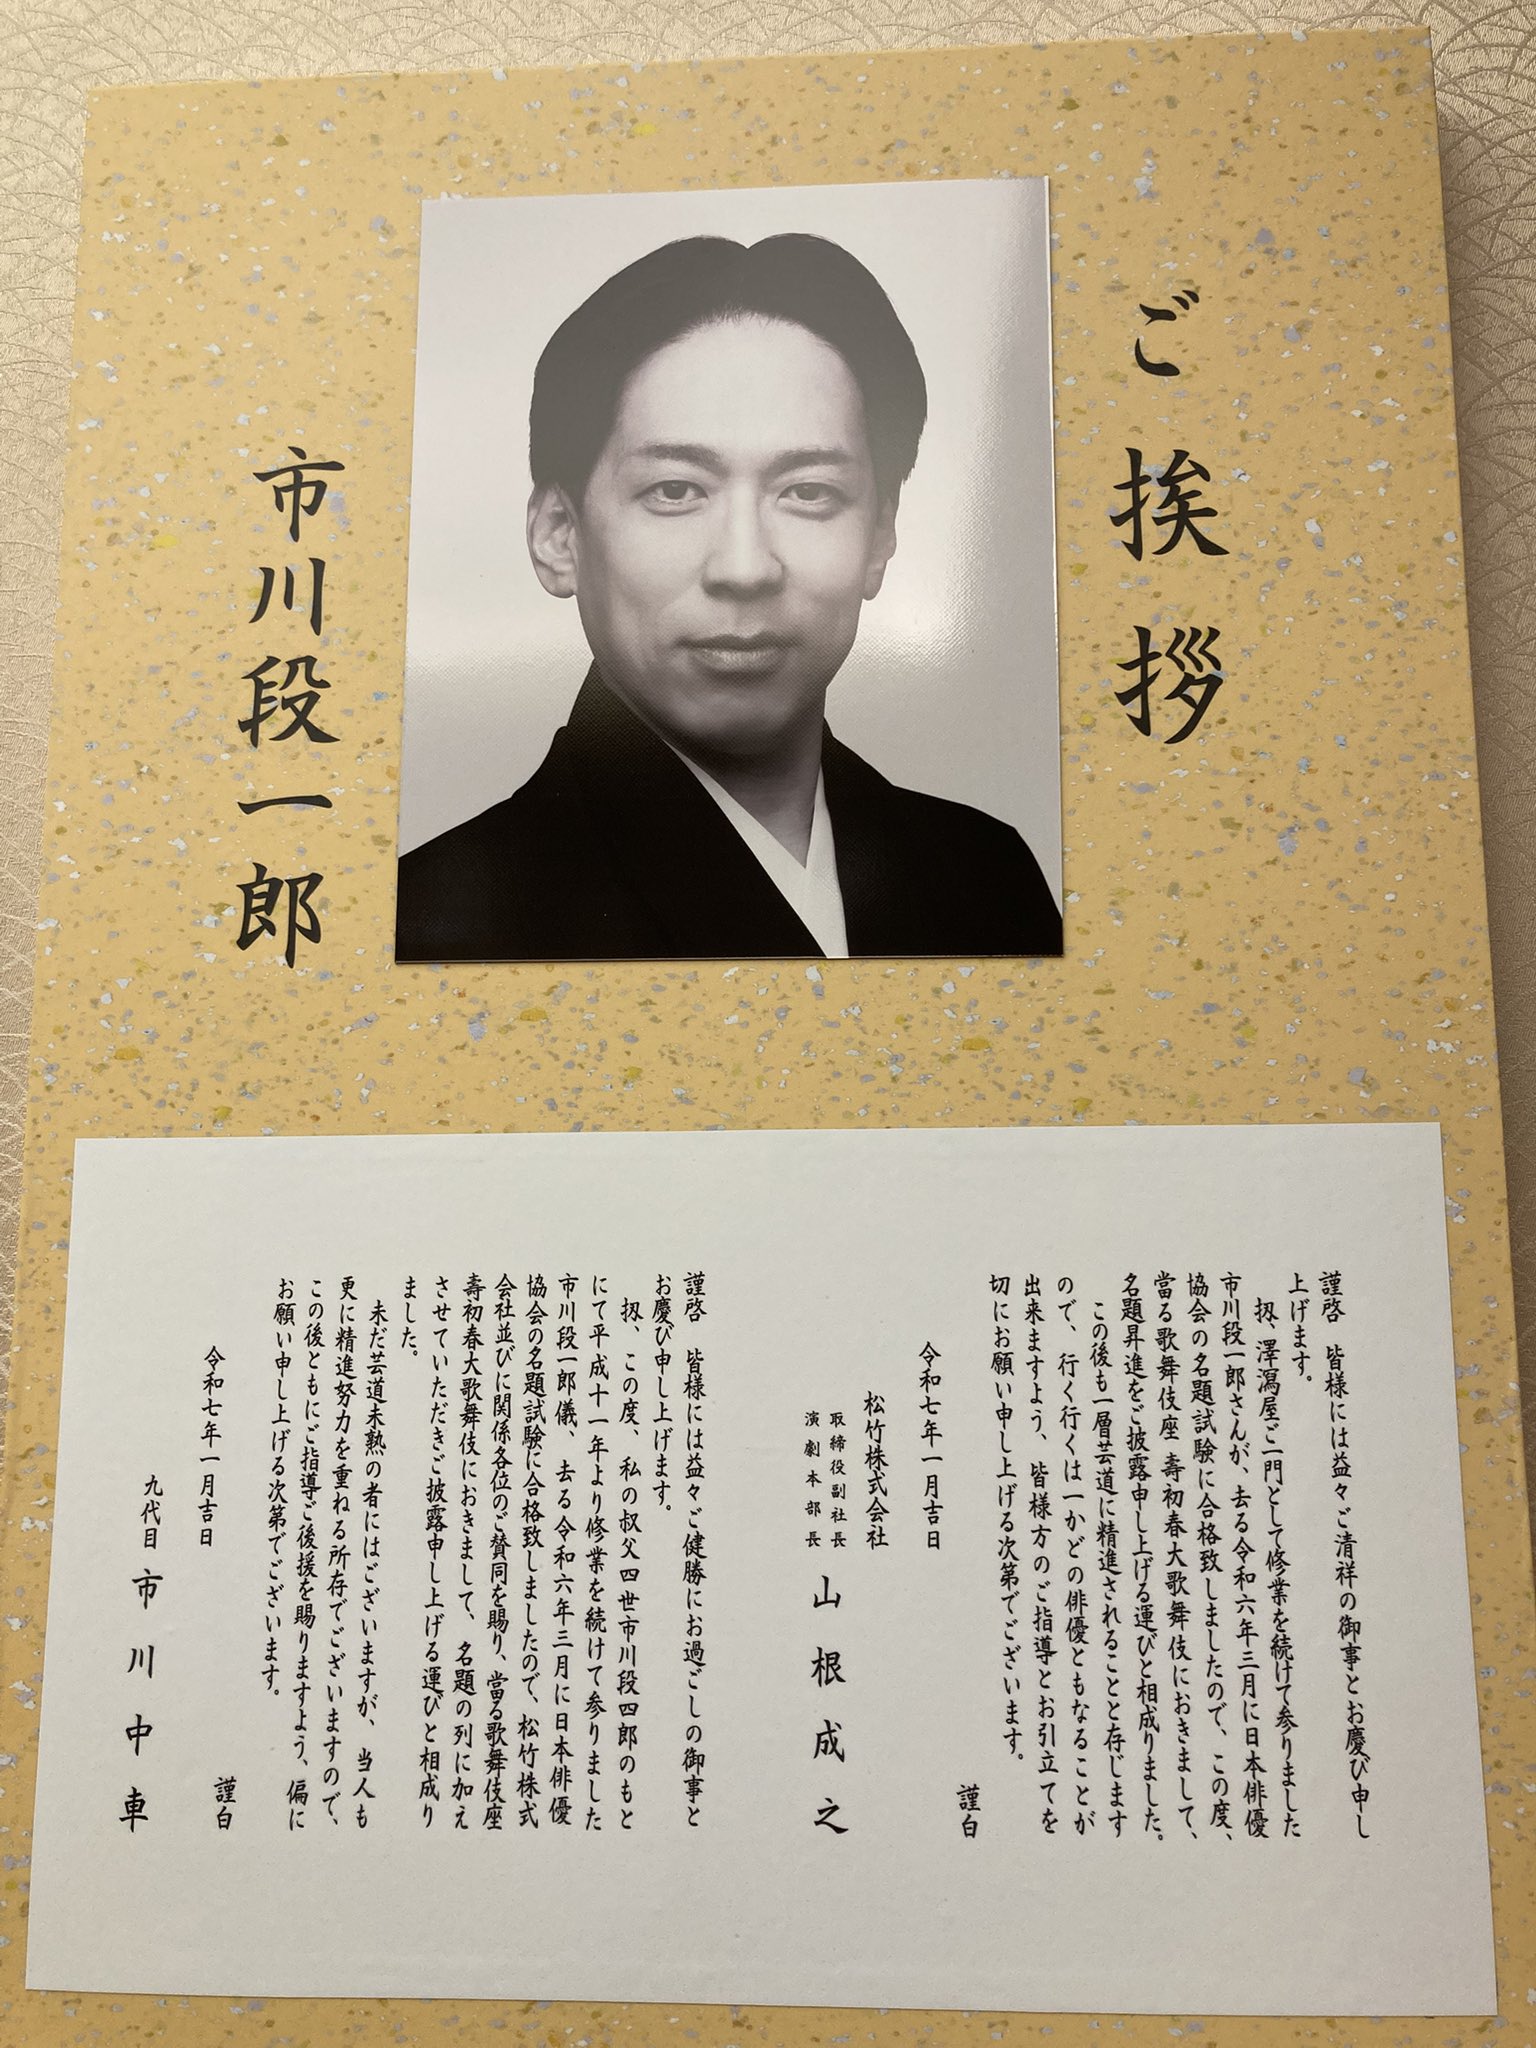 ご挨拶
市川段一郎
謹啓　皆様には益々ご清祥の御事とお慶び申し
上げます。
扨、澤瀉屋ご一門として修業を続けて参りました
市川段一郎さんが、去る令和六年三月に日本俳優
協会の名題試験に合格致しましたので、この度、
當る歌舞伎座　壽初春大歌舞伎におきまして、
名題昇進をご披露申し上げる運びと相成りました。
この後も一層芸道に精進されることと存じます
ので、行く行くは一かどの俳優ともなることが
出来ますよう、皆様方のご指導とお引立てを
切にお願い申し上げる次第でございます。
謹白
令和七年一月吉日
松竹株式会社
取締役副社長
演劇本部長
山根成之
謹啓　皆様には益々ご健勝にお過ごしの御事と
お慶び申し上げます。
扨、この度、私の叔父四世市川段四郎のもと
にて平成十一年より修業を続けて参りました
市川段一郎儀、去る令和六年三月に日本俳優
協会の名題試験に合格致しましたので、松竹株式
会社並びに関係各位のご賛同を賜り、當る歌舞伎座
壽初春大歌舞伎におきまして、名題の列に加え
させていただきご披露申し上げる運びと相成り
ました。
未だ芸道未熟の者にはございますが、当人も
更に精進努力を重ねる所存でございますので、
この後ともにご指導ご後援を賜りますよう、偏に
お願い申し上げる次第でございます。
謹白
令和七年一月吉日
九代目　市川中車